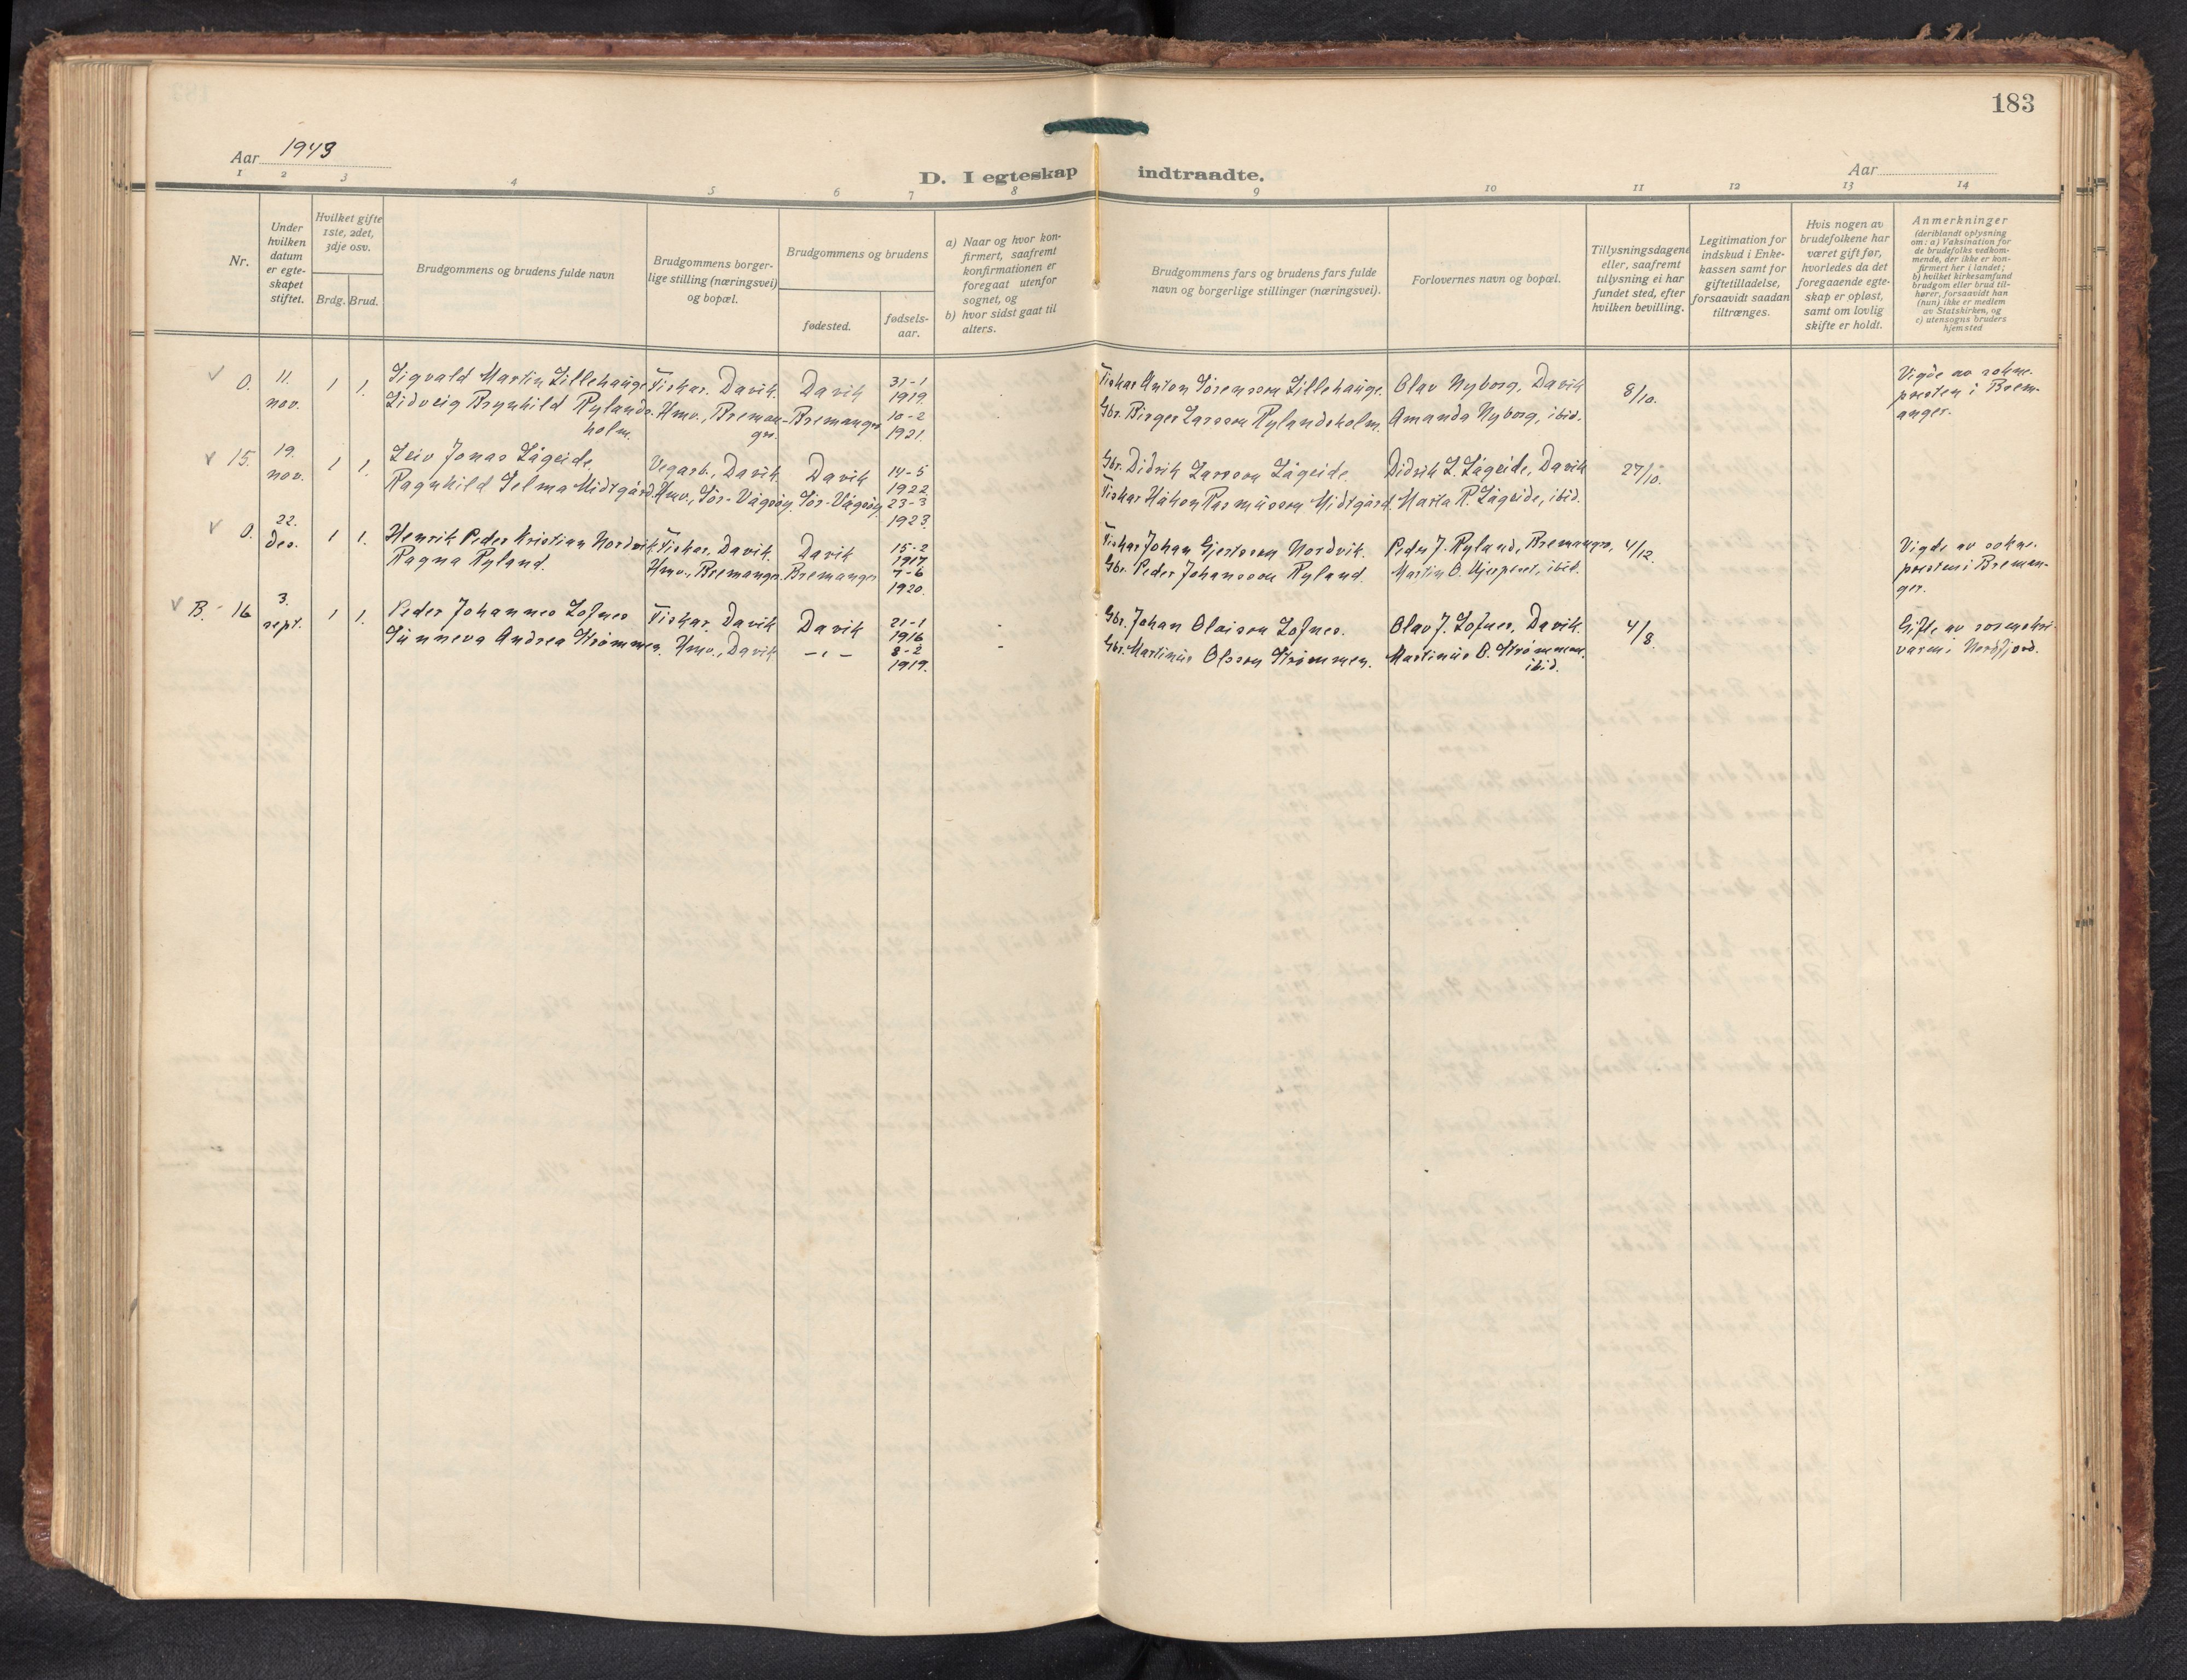 183
Aar 1943
D. I egteskap indtraadte.
Aar
1 2 3 4 5 6 7 8 9 10 11 12 13 14
Nr.
Under
hvilken
datum
er egte-
skapet
stiftet.
Hvilket gifte
1ste, 2det,
3dje osv.
Brdg. Brud.
Brudgommens og brudens fulde navn
Brudgommens borger-
lige stilling (næringsvei)
og bopæl.
Brudgommens og brudens
fødested.
fødsels-
aar.
a) Naar og hvor kon-
firmert, saafremt
konfirmationen er
foregaat utenfor
sognet, og
b) hvor sidst gaat til
alters.
Brudgommens fars og brudens fars fulde
navn og borgerlige stillinger (næringsvei).
Forlovernes navn og bopæl.
Tillysningsdagene
eller, saafremt
tillysning ei har
fundet sted, efter
hvilken bevilling.
Legitimation for
indskud i Enke-
kassen samt for
giftetilladelse,
forsaavidt saadan
tiltrænges.
Hvis nogen av
brudefolkene har
været gift før,
hvorledes da det
foregaaende egte-
skap er opløst,
samt om lovlig
skifte er holdt.
Anmerkninger
(deriblandt oplysning
om: a) Vaksination for
de brudefolks vedkom-
mende, der ikke er kon-
firmert her i landet;
b) hvilket kirkesamfund
brudgom eller brud til-
hører, forsaavidt han
(hun) ikke er medlem
av Statskirken, og
c) utensogns bruders
hjemsted
0. 11. nov. 1 1. Sigvald Martin Lillehauge Fiskar. Davik. Davik 31-1 1919 Fiskar Anton Sørensson Lillehauge. Olav Nyborg, Davik 8/10. Vigde av sokne-
Lidveig Brynhild Rylands- Hmv., Breman- Bremanger 10-2 Gbr. Birger Larsson Rylandsholm. Amanda Nyborg, ibid. presten i Brem-
holm. ger. 1921. anger.
15. 19. nov. 1 1. Leiv Jonas Lågeide. Vegarb., Davik. Davik 14-5 1922 Gbr. Didrik Larsson Lågeide. Didrik L. Lågeide, Davik 27/10.
Ragnhild Selma Midtgård. Hmv., Sør-Vågsøy. Sør-Vågsøy. 23-3 1923. Fiskar Håkon Rasmusson Midtgård. Marta R. Lågeide, ibid.
0. 22. des. 1 1. Henrik Peder Kristian Nordvik. Fiskar, Davik. Davik 15-2 1917 Fiskar Johan Gjertsson Nordvik. Peder J. Ryland, Bremanger, 4/12. Vigde av sokne-
Ragna Ryland. Hmv., Bremanger. Bremanger 7-6 1920. Gbr. Peder Johansson Ryland. ibid. presten i Breman-
ger.
B. - 16 3. sept. 1 1. Peder Johannes Lofnes Fiskar, Davik Davik 21-1 1916 - Gbr. Johan Olaison Lofnes. Olav J. Lofnes, Davik. 4/8. Gifte av sorenskri-
Sünneva Andrea Strømmen. Hmv., Davik — „ — 8-2 1919. - Gbr. Martinus Olsson Strømmen. Martinus O. Strømmen. ibid. varen i Nordfjord.